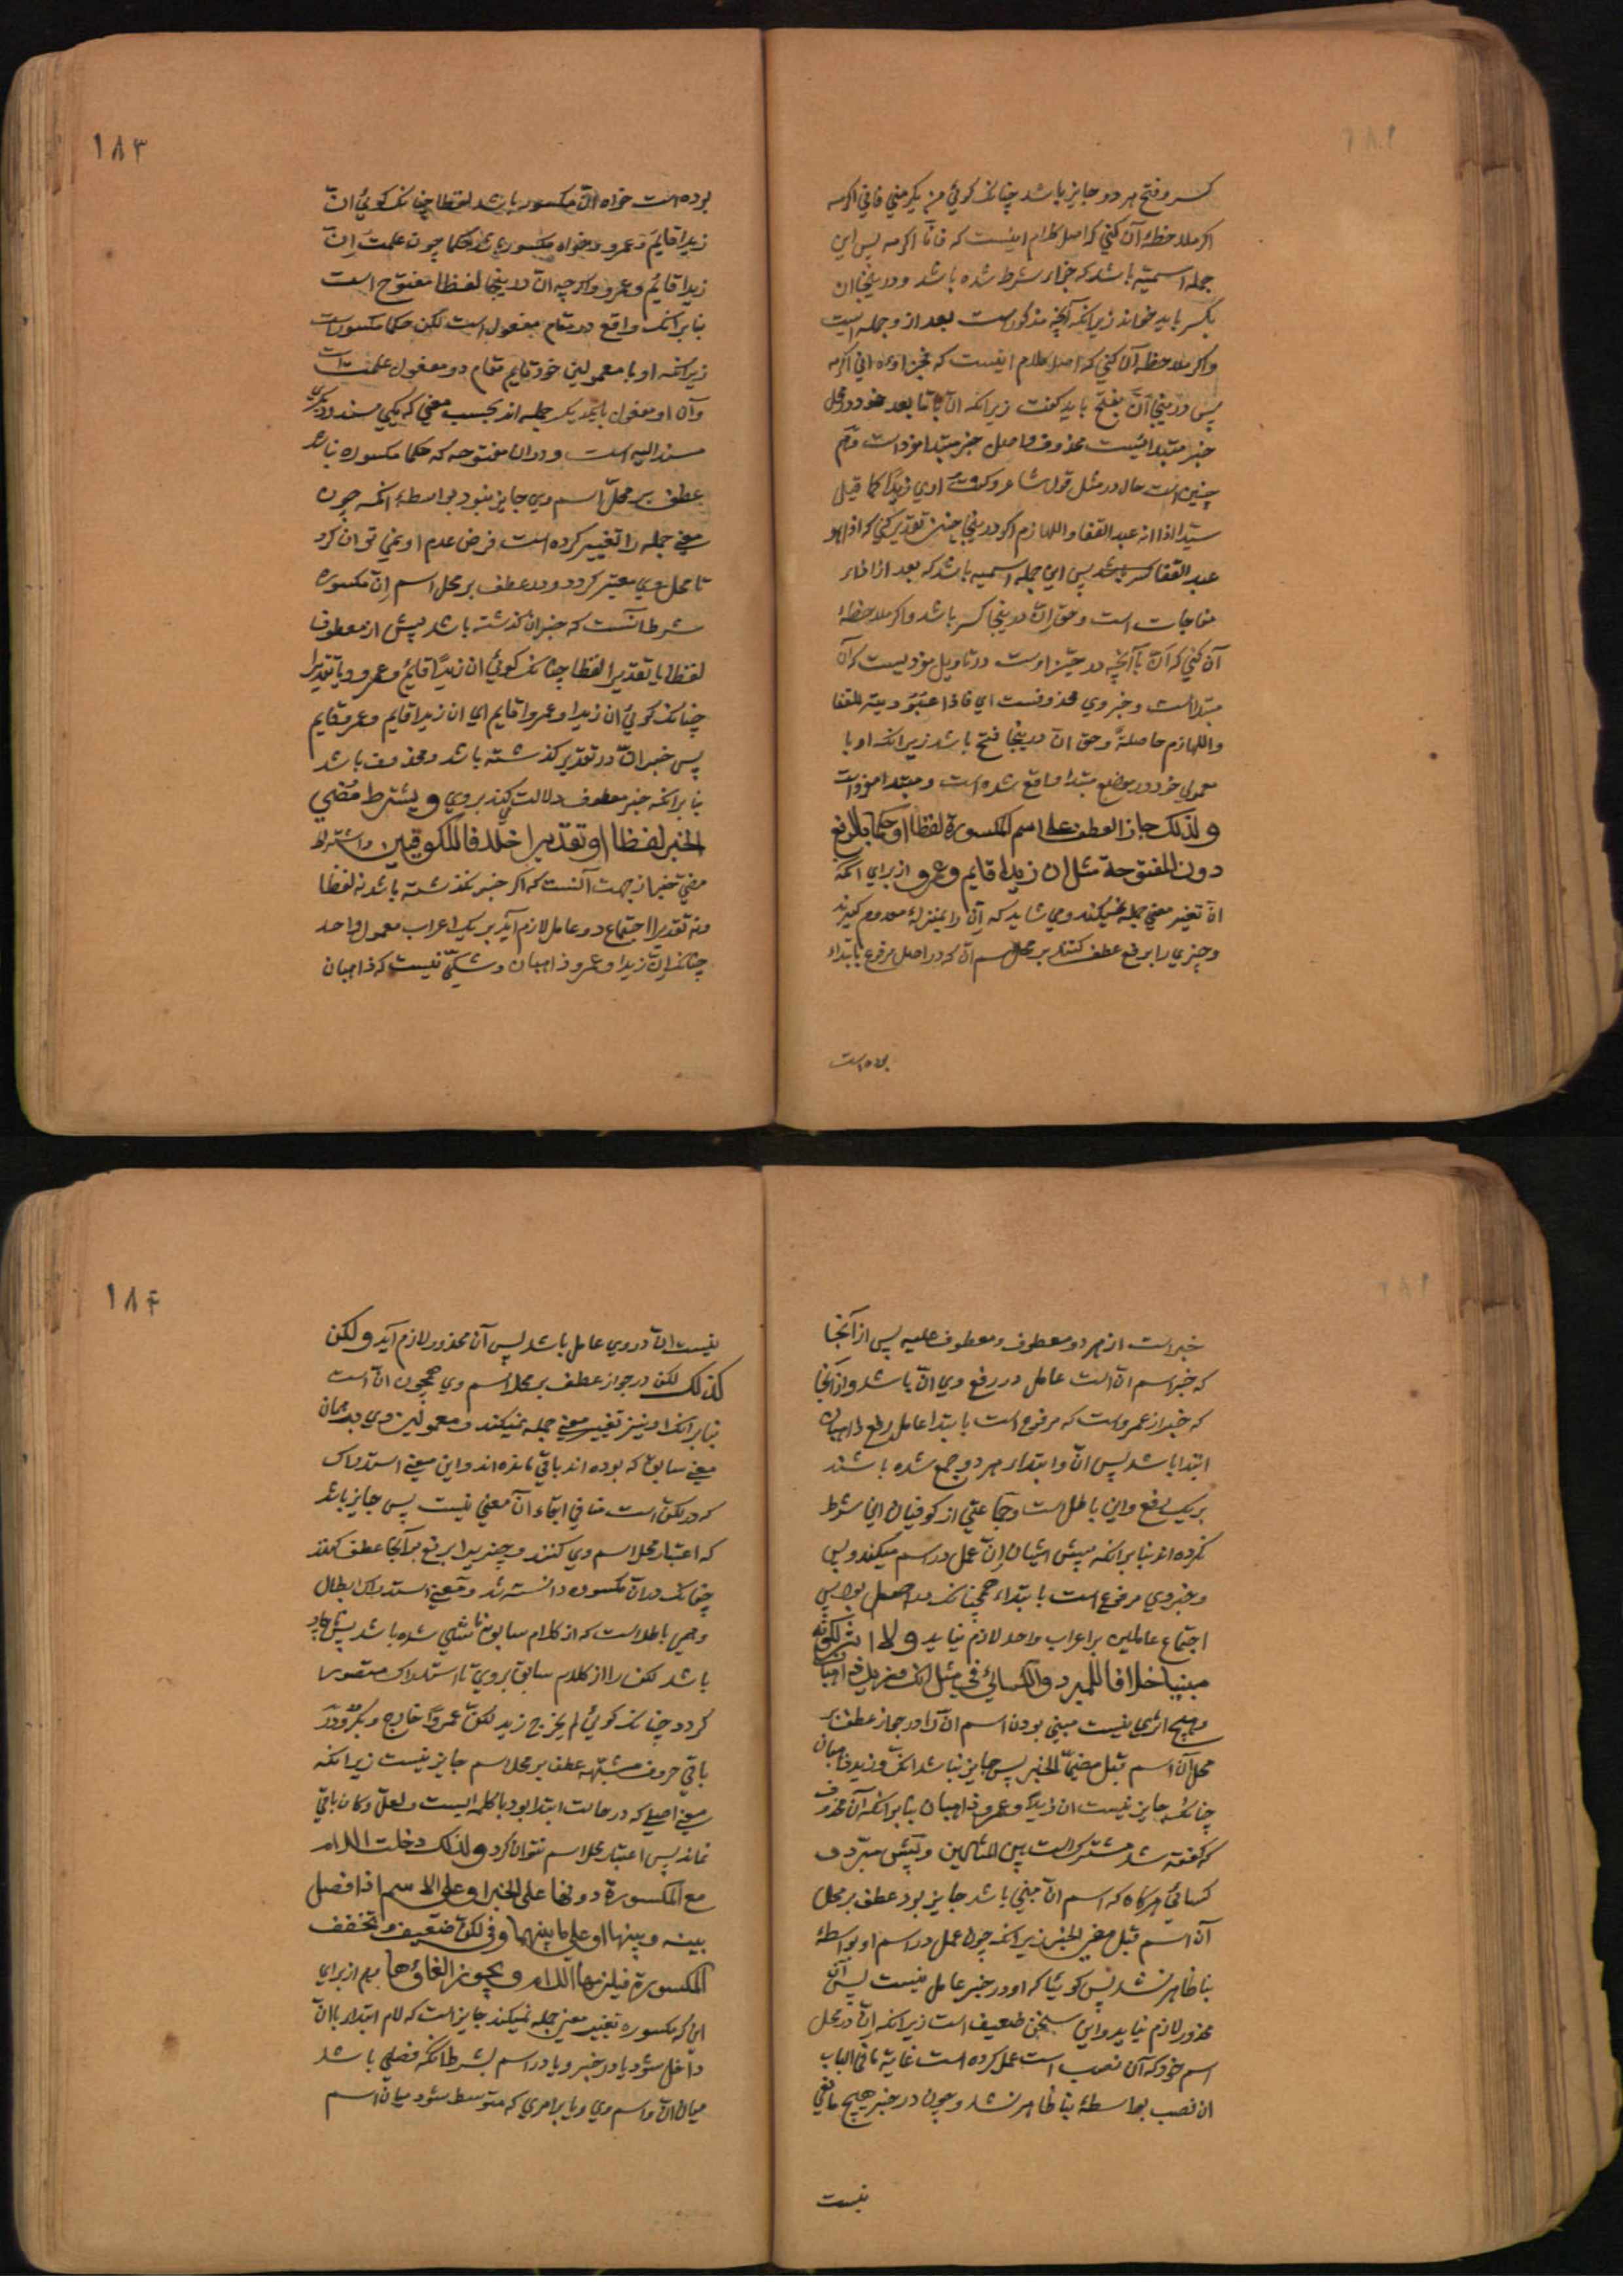 كسر و فتح هر دو جایز باشد چنانك كوئي من یكرمني فاني اكرمه
اكر ملاحظهٔ آن كني كه اصل كلام اینست كه فانا اكرمه پس این
جمله اسمیّه باشد كه جزاء شرط شده باشد و در ینجا ان
بكسر باید خواند زیرانكه آنچه مذكور است بعد از و جمله است
و اكر ملاحظه آن كني كه اصل كلام اینست كه فجزاوه اني اكرمه
پس در ینجا انّ بفتح باید كفت زیرانكه انّ با ما بعد خود در محل
خبر مبتدائیست محذوف و اصل خبر مبتدا مفرد است و هم
چنین است حال در مثل قول شاعر و كنت اري زیدًا كما قیل
سیّدا اذا انه عبد القفا و اللهازم اكر در ینجا چنین تقدیر كني كه اذا هو
عبد القفا كسر باشد پس این جمله اسمیه باشد كه بعد از اذاء
مفاجات است و حق انّ در ینجا كسر باشد و اكر ملاحظهٔ
آن كني كه انّ با آنچه در حیّز اوست در تاویل مفردیست كه آن
مبتداست و خبر وي محذوفست اي فاذا عبودیته للقفا
و اللهازم حاصلةٌ و حق انّ در ینجا فتح باشد زیرانكه او با
معمولي خود در موضع مبتدا واقع شده است و مبتدا مفرد است
و لذلك جاز العطف علی اسم المكسورة لفظا او حكما بالرفع
دون المفتوحة مثل ان زیدا قایم و عمرو از براي آنكه
انّ تغییر معني جمله نمیكند و مي شاید كه آن را بمنزلهٔ معدوم كیرند
و چیزي را برفع عطف كنند بر محل اسم ان كه در اصل مرفوع بابتداء
بوده است
١٨٣
بوده است خواه انّ مكسوره باشد لفظا چنانك كوئي انّ
زیدا قایم و عمرو و خواه مكسوره باشد حكما چون علمت انّ
زیدا قائم و عمرو و اكرچه انّ در ینجا لفظا مفتوح است
بنا برانك واقع در مقام مفعول است لكن حكما مكسور است
زیرانكه او با معمولین خود قایم مقام دو مفعول علمت است
و آن دو مفعول با یكدیكر جمله اند بحسب معني كه یكي مسند و دیكري
مسند الیه است و در ان مفتوحه كه حكما مكسوره نباشد
عطف بر محلّ اسم وي جایز نبود بواسطهٔ انكه چون
معني جمله را تغییر كرده است فرض عدم او نمي توان كرد
تا محل وي معتبر كردد و در عطف بر محل اسم انّ مكسوره
شرط آنست كه خبر ان كذشته باشد پیش از معطوف
لفظا یا تقدیرا لفظا چنانك كوئي ان زیدًا قائم و عمرو و یا تقدیرا
چنانك كوئي ان زیدا و عمرو قایم اي ان زیدا قایم و عمرو قایم
پس خبر انّ در تقدیر كذشته باشد و محذوف باشد
بنا برانكه خبر معطوف دلالت كند بر وي و یشترط مُضي
الخبر لفظا او تقدیرا خلافا للكوفیین و اشتراط
مضي خبر از جهت آنست كه اكر خبر نكذشته باشد نه لفظا
و نه تقدیرا اجتماع دو عامل لازم آید بر یك اعراب معمول واحد
چنانك انّ زیدا و عمرو ذاهبان و شكّي نیست كه ذاهبان
خبر است از هر دو معطوف و معطوف علیه پس از آنجا
كه خبر اسم انّ است عامل در رفع وي انّ باشد و از آنجا
كه خبر از عمرو است كه مرفوع است بابتدا عامل رفع ذاهبان
ابتدا باشد پس انّ و ابتداء هر دو جمع شده باشند
بر یك رفع و این باطل است و جماعتي از كوفیان این شرط
نكرده اند بنا برانكه پیش ایشان انّ عمل در اسم میكند و بس
و خبر وي مرفوع است بابتداء همچنانك در اصل بود پس
اجتماع عاملین بر اعراب واحد لازم نیاید و لا اثر لكونه
مبنیا خلافا للمبرد و الكسائي في مثل انك و زید ذاهبان
و هیچ اثري نیست مبني بودن اسم انّ را در جواز عطف بر
محل آن اسم قبل مضيّ الخبر پس جایز نباشد انك و زید ذاهبان
چنانك جایز نیست ان زیدا و عمرو ذاهبان بنا برانكه آن محذوف
كه كفته شد مشترك است بین المثالین و پیش مبرّد و
كسائي هركاه كه اسم انّ مبني باشد جایز بود عطف بر محل
آن اسم قبل مضي الخبر زیرانكه چون عمل در اسم او بواسطهٔ
بنا ظاهر نشد پس كوئیا كه او در خبر عامل نیست پس آن
محذور لازم نیاید و این سخن ضعیف است زیرانكه انّ در محل
اسم خود كه آن نصب است عمل كرده است غایة ما في الباب
ان نصب بواسطهٔ بنا ظاهر نشد و چون در خبر هیچ مانعي
نیست
١٨٤
نیست انّ در وي عامل باشد پس آن محذور لازم آید و لكن
كذلك لكن در جواز عطف بر محل اسم وي همچون انّ است
بنا برانك او نیز تغییر معني جمله نمیكند و معمولین وي بر همان
معني سابق كه بوده اند باقي مانده اند و این معني استدراك
كه در لكن است منافي ابقاء آن معني نیست پس جایز باشد
كه اعتبار محل اسم وي كنند و چیزیرا برفع بر آنجا عطف كنند
چنانك در انّ مكسوره دانسته شد و معني استدراك ابطال
وهمي باطلست كه از كلام سابق ناشي شده باشد پس ناچار
باشد لكن را از كلام سابق بر وي تا استدراك متصور
كردد چنانك كوئي لم یخرج زید لكنّ عمروًا خارج و بكرٌ و در
باقي حروف مشبّهه عطف بر محل اسم جایز نیست زیرانكه
معني اصلي كه در حالت ابتدا بود با كلمه لیت و لعلّ و كان باقي
نماند پس اعتبار محل اسم نتوان كرد و لذلك دخلت اللام
مع المكسورة دونها علی الخبر او علی الاسم اذا فصل
بینه و بینها او علی ما بینهما و في لكنّ ضعیف و تخفف
المكسورة فیلزمها اللام و یجوز الغاؤها هم از براي
این كه مكسوره تغییر معني جمله نمیكند جایز است كه لام ابتداء با انّ
داخل شود یا در خبر و یا در اسم بشرط انكه فصلي باشد
میان انّ و اسم وي و یا بر امري كه متوسط شود میان اسم